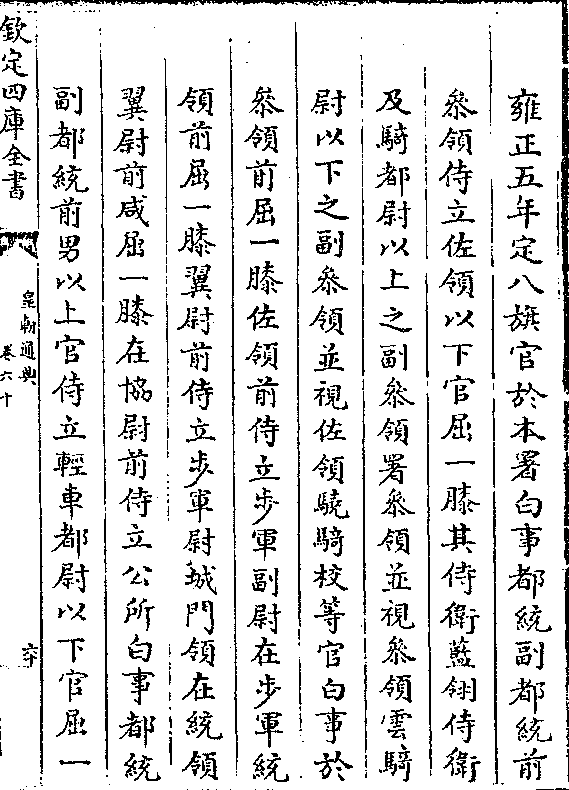 雍正五年定八旗官於本署白事都統副都統前
叅領侍立佐領以下官屈一膝其侍衛藍翎侍衛
及騎都尉以上之副叅領署叅領並視叅領雲騎
尉以下之副叅領並視佐領驍騎校等官白事於
叅領前屈一膝佐領前侍立步軍副尉在步軍統
領前屈一膝翼尉前侍立步軍尉城門領在統領
翼尉前咸屈一膝在協尉前侍立公所白事都統
副都統前男以上官侍立輕車都尉以下官屈一
欽定四庫全書
皇朝通典
卷六十